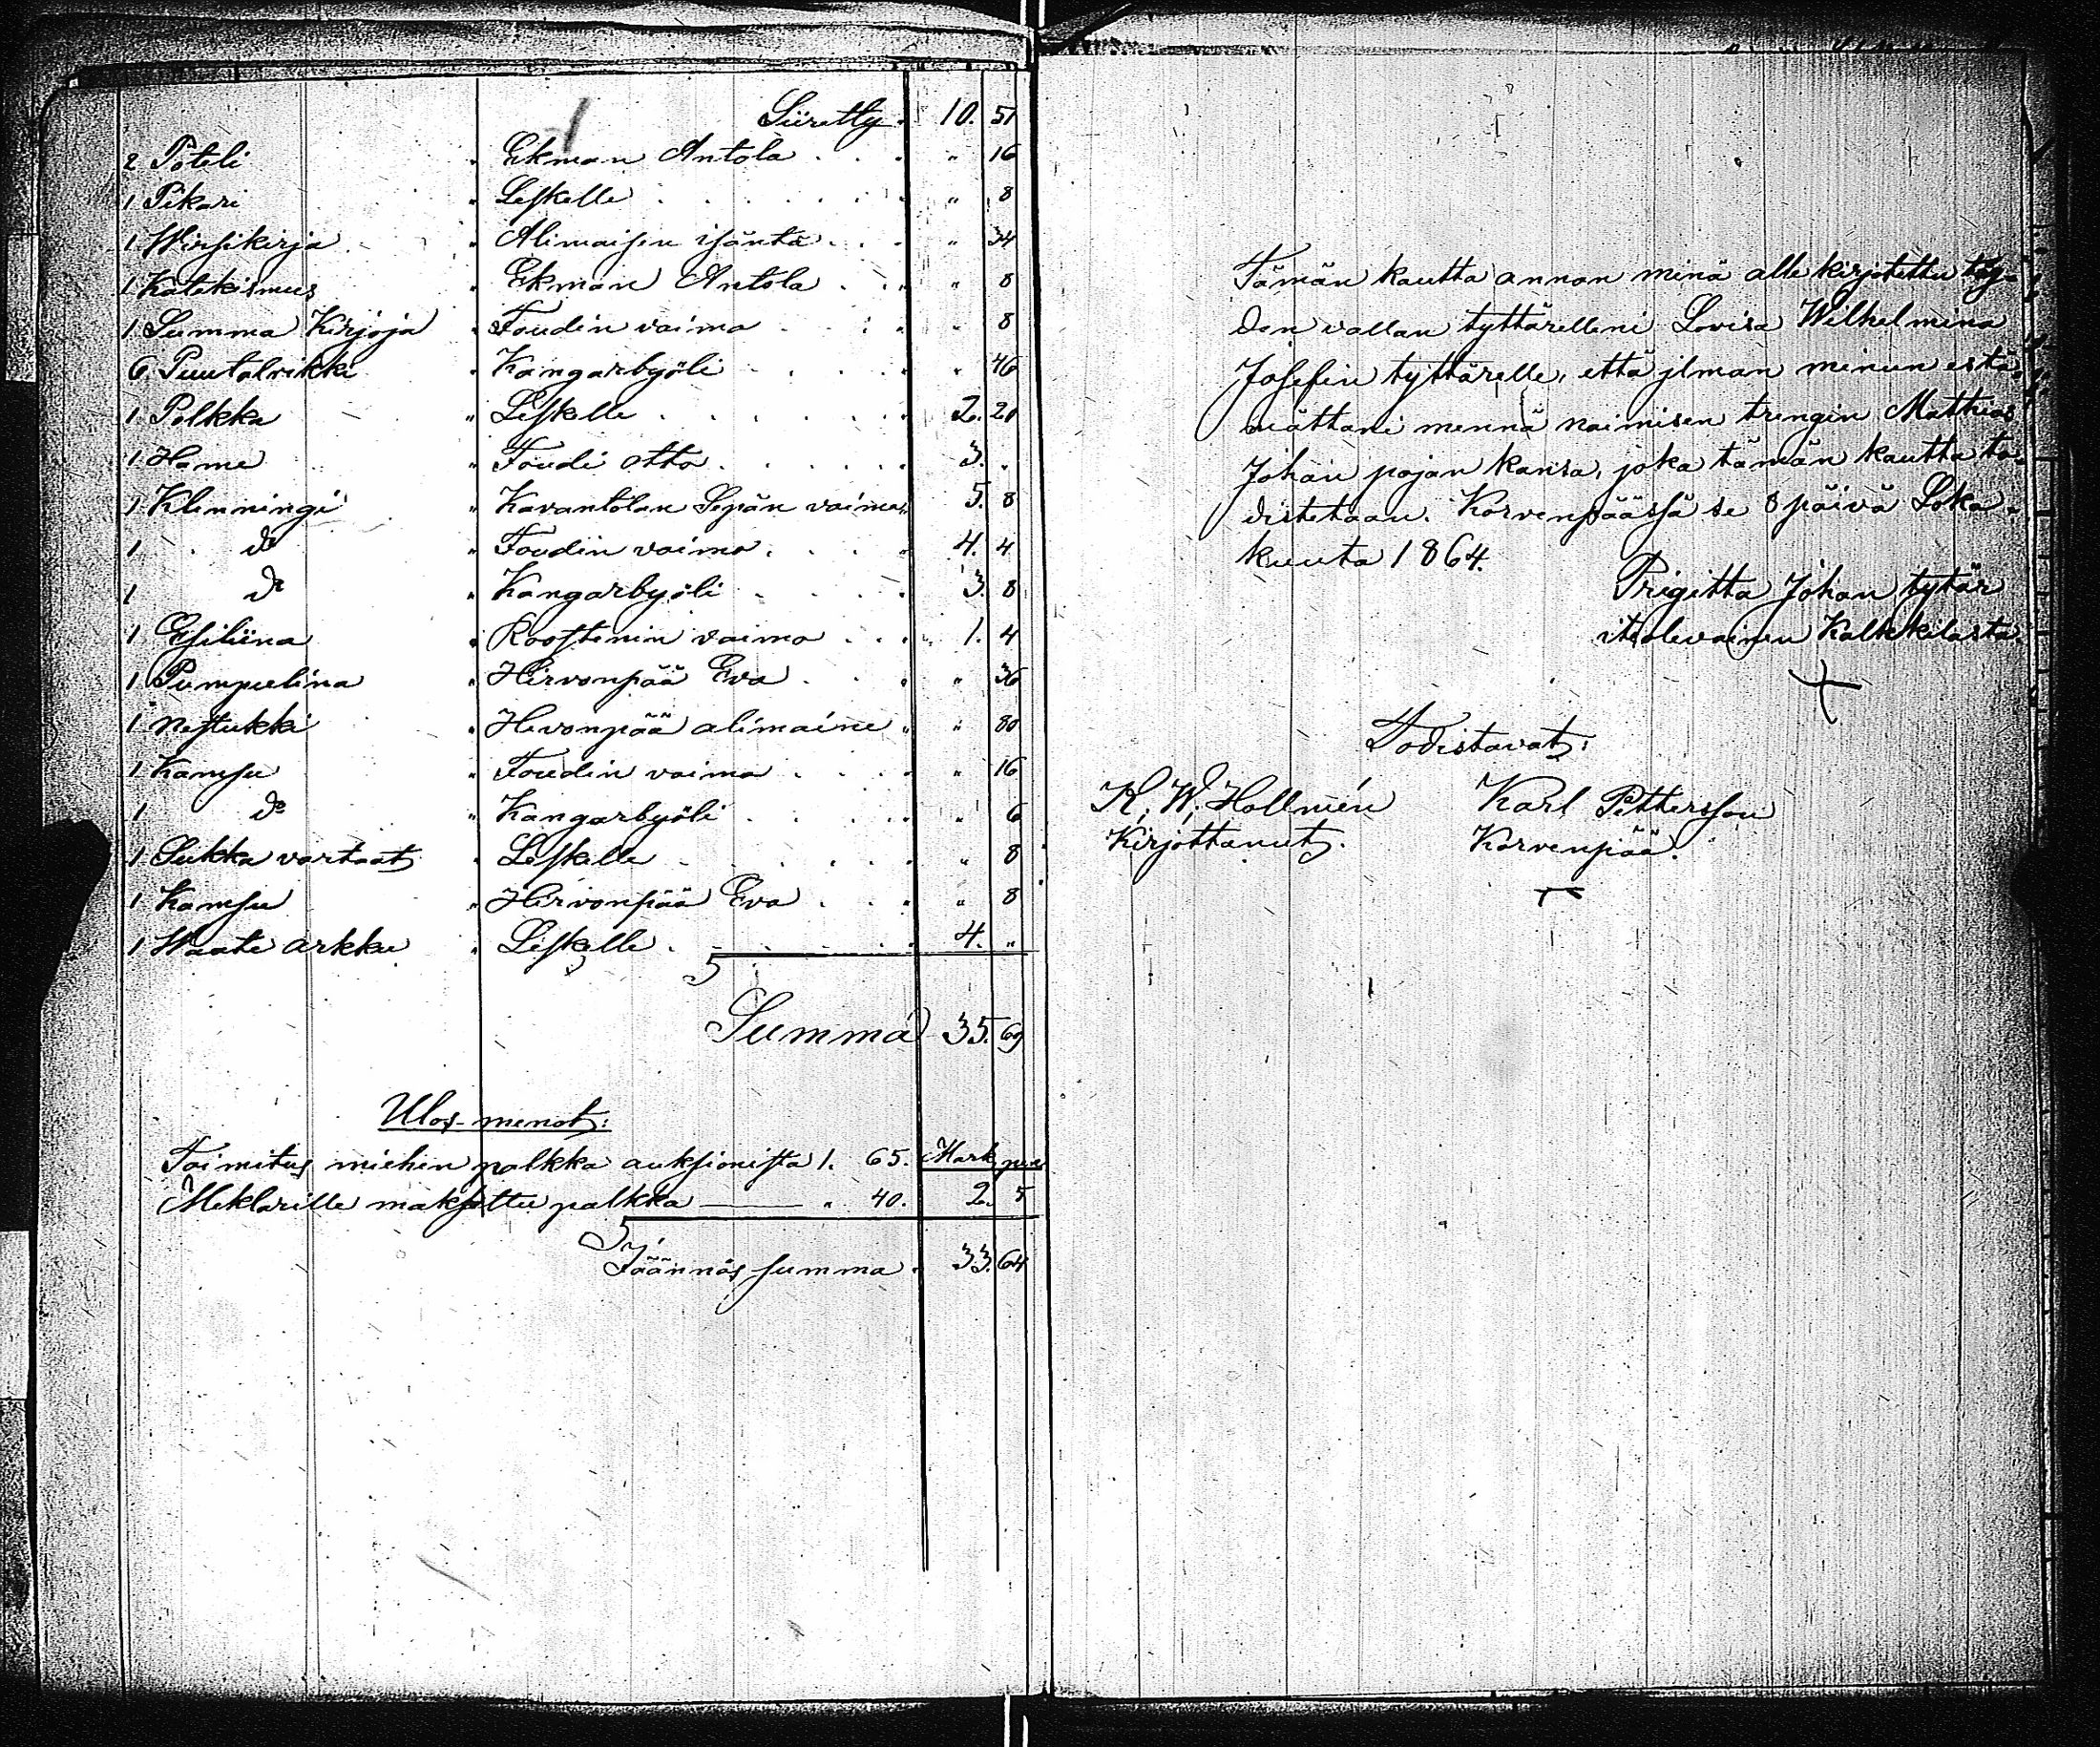 Siiretty. 10. 51
2 Poteli " Ekman Antola . . . " 16
1 Pikari " Leskelle . . . . . . " 8
1 Wirsikirja " Alimaisen isäntä . . . " 34
1 Katekismus " Ekman Antola . . . " 8
1 Summa Kirjoja " Foudin vaimo . . . . " 8
6 Puutalrikki " Kangarbyöli . . . . " 46
1 Polkka " Leskelle . . . . . . 2. 20
1 Hame " Foudi Otto . . . . . 3. "
1 Klinningi " Kavantolan Sepän vaimo " 5. 8
1 do " Foudin vaimo . . . . 4. 4
1 do " Kangarbyöli . . . . 3. 8
1 Esiliina " Roostenin vaimo . . . 1. 4
1 Pumpulina " Hirvonpää Eva . . . " 36
1 Nestukki " Hirvonpää alimaine " " 80
1 Kamsu " Foudin vaimo . . . . " 16
1 do " Kangarbyöli . . . . " 6
1 Sukka vartaat " Leskelle . . . . . . " 8
1 Kamsu " Hirvonpää Eva . . . " 8
1 Waate arkku " Leskelle . . . . . . 4. "
Summa 35. 69
Ulos-menot:
Toimitus miehen palkka auksionista 1. 65. Mark
Meklarille maksettu palkka " 40. 2. 5
Jäännös summa . 33. 64
Tämän kautta annan minä alle kirjotettu täy-
den vallan tyttärelleni Lovisa Wilhelmina
Josefin tyttärelle, että jlman minun estä-
mättäni mennä naimisen trengin Matthias
Johan pojan kansa, joka tämän kautta to-
distetaan. Korvenpäässä se 8 päivä Loka-
kuuta 1864.
Prigitta Johan tytär
itsolevainen Kalkkilasta
+
Todistavat:
K. W. Hollmén Karl Pettersson
Kirjottanut. Korvenpää.